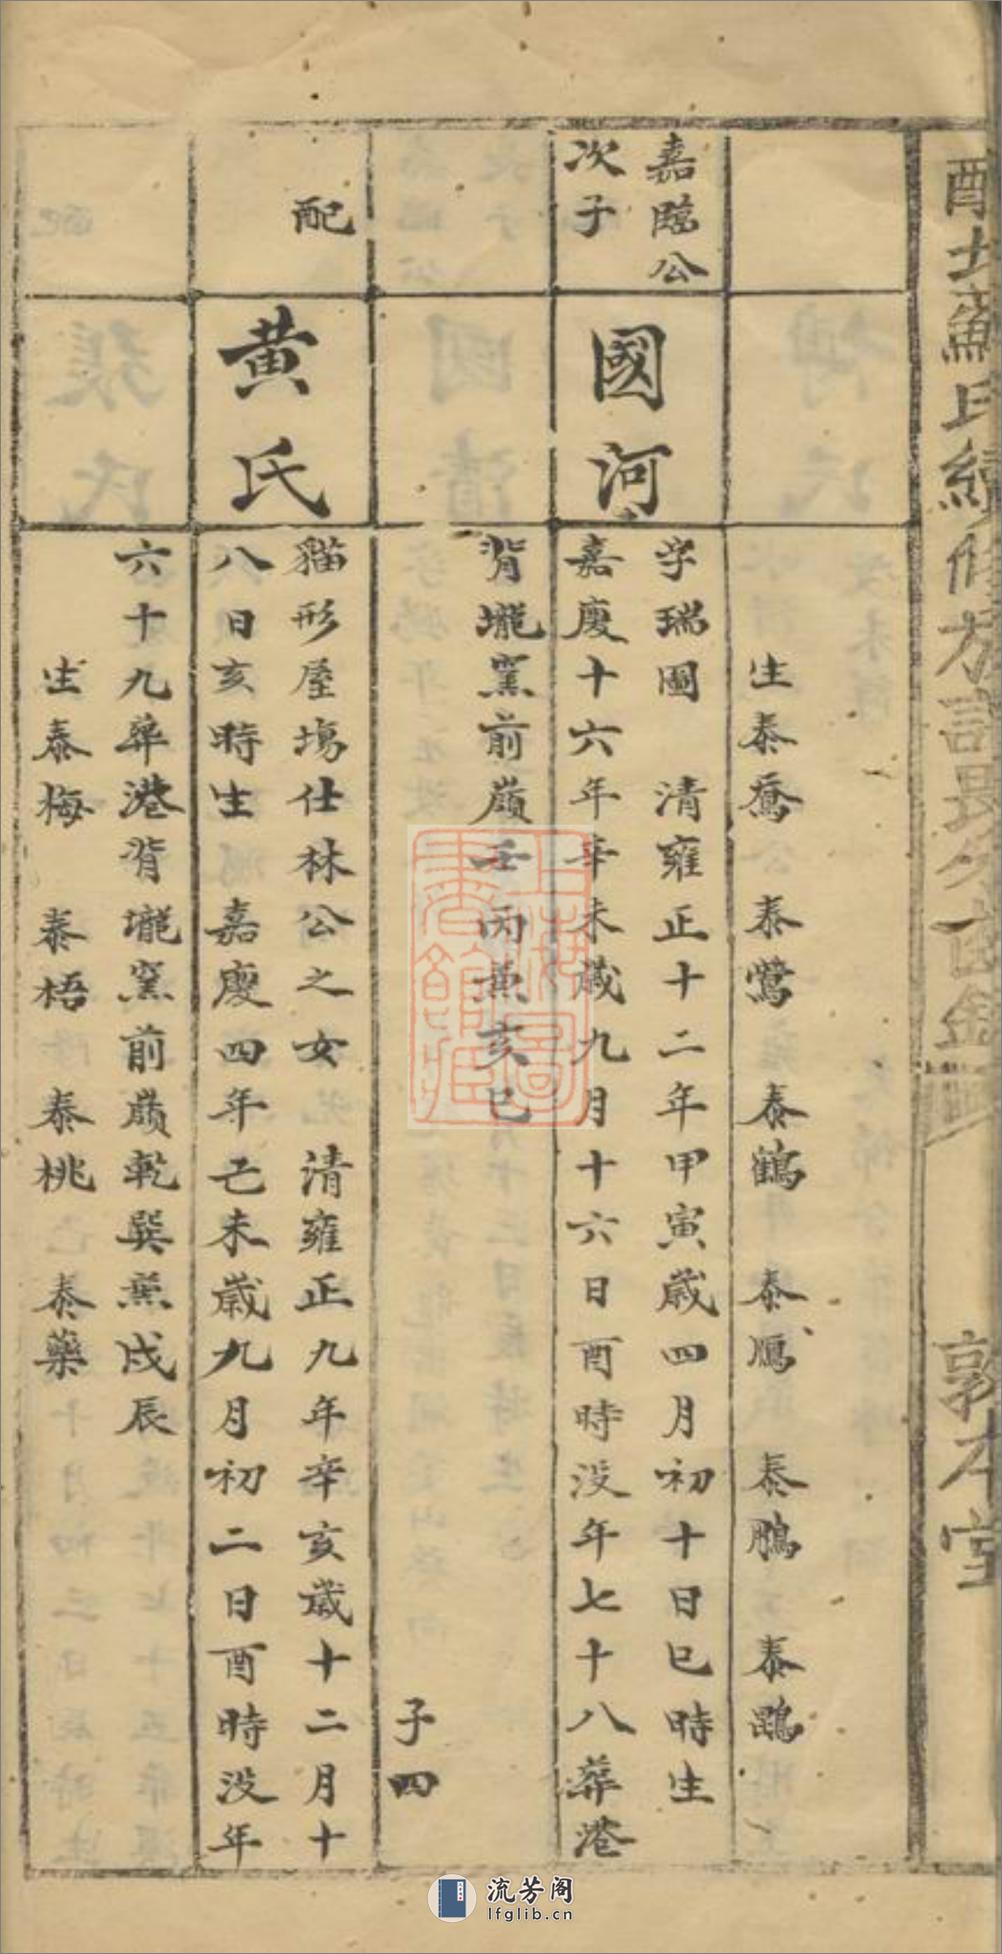 敦本堂
生泰喬 泰鶯 泰鶴 泰鳳 泰鵬 泰鵾
嘉臨公
次子
國河
字瑞圖 清雍正十二年甲寅歲四月初十日巳時生
嘉慶十六年辛未歲九月十六日酉時没年七十八葬港
背壠窯前嶺壬丙兼亥巳
子四
配
黃氏
貓形屋塲仕林公之女 清雍正九年辛亥歲十二月十
八日亥時生 嘉慶四年己未歲九月初二日酉時没年
六十九葬港背壠窯前嶺乾巽兼戌辰
生泰梅 泰梧 泰桃 泰藥
上海圖書館藏
流芳阁
lfglib.cn